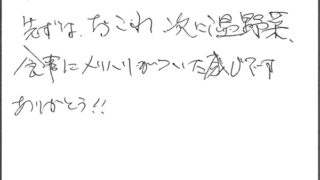 先ずは、なごれ 次に温野菜、
食事にメリハリがついた感じです
ありがとう!!